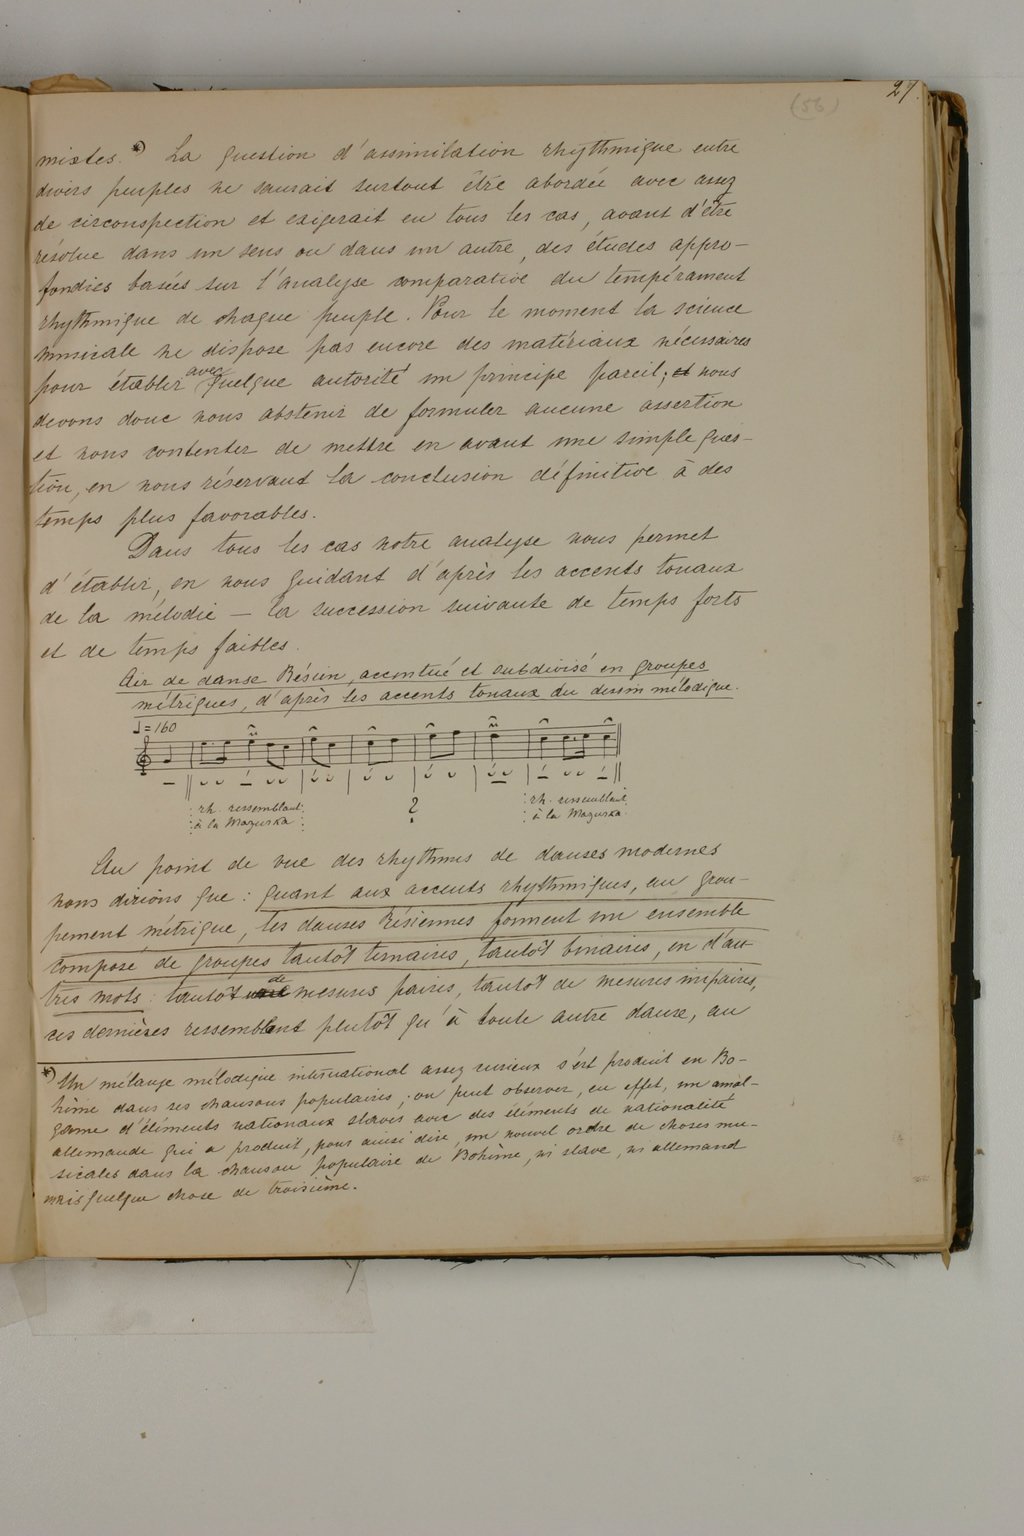 27.
(56)
mixtes. *) La question d'assimilation rhythmique entre
divers peuples ne saurait surtout être abordée avec assez
de circonspection et exigerait en tous les cas, avant d'être
résolue dans un sens ou dans un autre, des études appro-
fondies basées sur l'analyse comparative du tempérament
rhythmique de chaque peuple. Pour le moment la science
musicale ne dispose pas encore des matériaux nécessaires
pour établir avec quelque autorité un principe pareil; et nous
devons donc nous abstenir de formuler aucune assertion
et nous contenter de mettre en avant une simple ques-
tion, en nous réservant la conclusion définitive à des
temps plus favorables.
Dans tous les cas notre analyse nous permet
d'établir, en nous guidant d'après les accents tonaux
de la mélodie — la succession suivante de temps forts
et de temps faibles.
Air de danse Résien, accentué et subdivisé en groupes
métriques, d'après les accents tonaux du dessin mélodique.
♩=160
rh. ressemblant
à la Mazurka
?
rh. ressemblant
à la Mazurka
Au point de vue des rhythmes de danses modernes
nous dirions que: quant aux accents rhythmiques, au grou-
pement métrique, les danses Résiennes forment un ensemble
composé de groupes tantôt ternaires, tantôt binaires, en d'au-
tres mots: tantôt de mesures paires, tantôt de mesures impaires,
ces dernières ressemblant plutôt qu'à toute autre danse, au
*) Un mélange mélodique international assez curieux s'est produit en Bo-
hême dans ses chansons populaires; on peut observer, en effet, un amal-
game d'éléments nationaux slaves avec des éléments de nationalité
allemande qui a produit, pour ainsi dire, un nouvel ordre de choses mu-
sicales dans la chanson populaire de Bohême, ni slave, ni allemand
mais quelque chose de troisième.